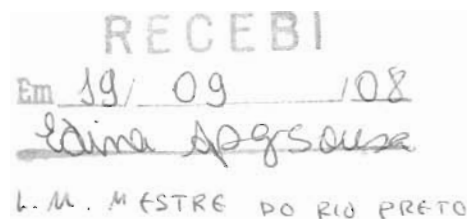 RECEBI
Em 19/ 09 /08
Edina Apgsousa
L.M. MESTRE DO RIO PRETO